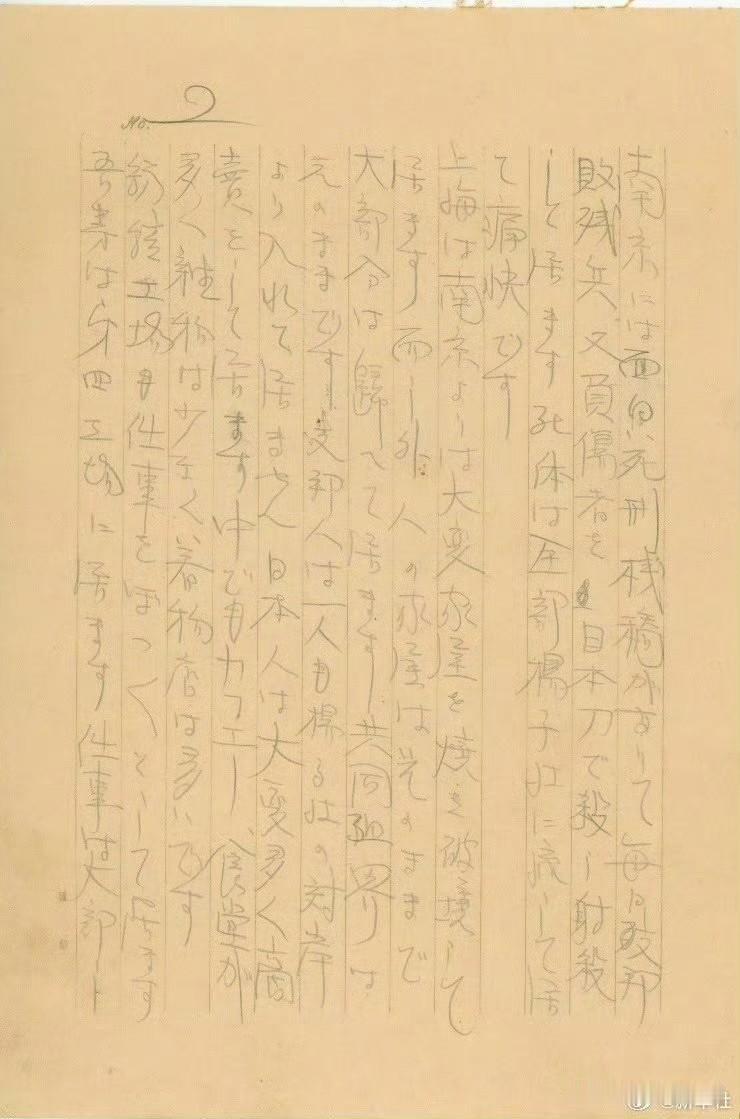 No. 2
南京には面白い死刑桟橋がありて毎日支那
敗残兵又負傷者を日本刀で殺し射殺
して居ます死体は全部揚子江に流して居
て痛快です
上海は南京よりは大変家屋を焼き破壊して
居ます而し外人の家屋は元のままで
大部分は歸へて居ます共同租界は
元のままです支那人は一人も揚子江の対岸
より入れて居ません日本人は大変多く商
賣をして居ます中でもカフエー、食堂が
多く雑物は少なく着物店は多いです
紡績工場も仕事をぼつ〱として居ます
吾等は第四工場に居ます仕事は大部ト